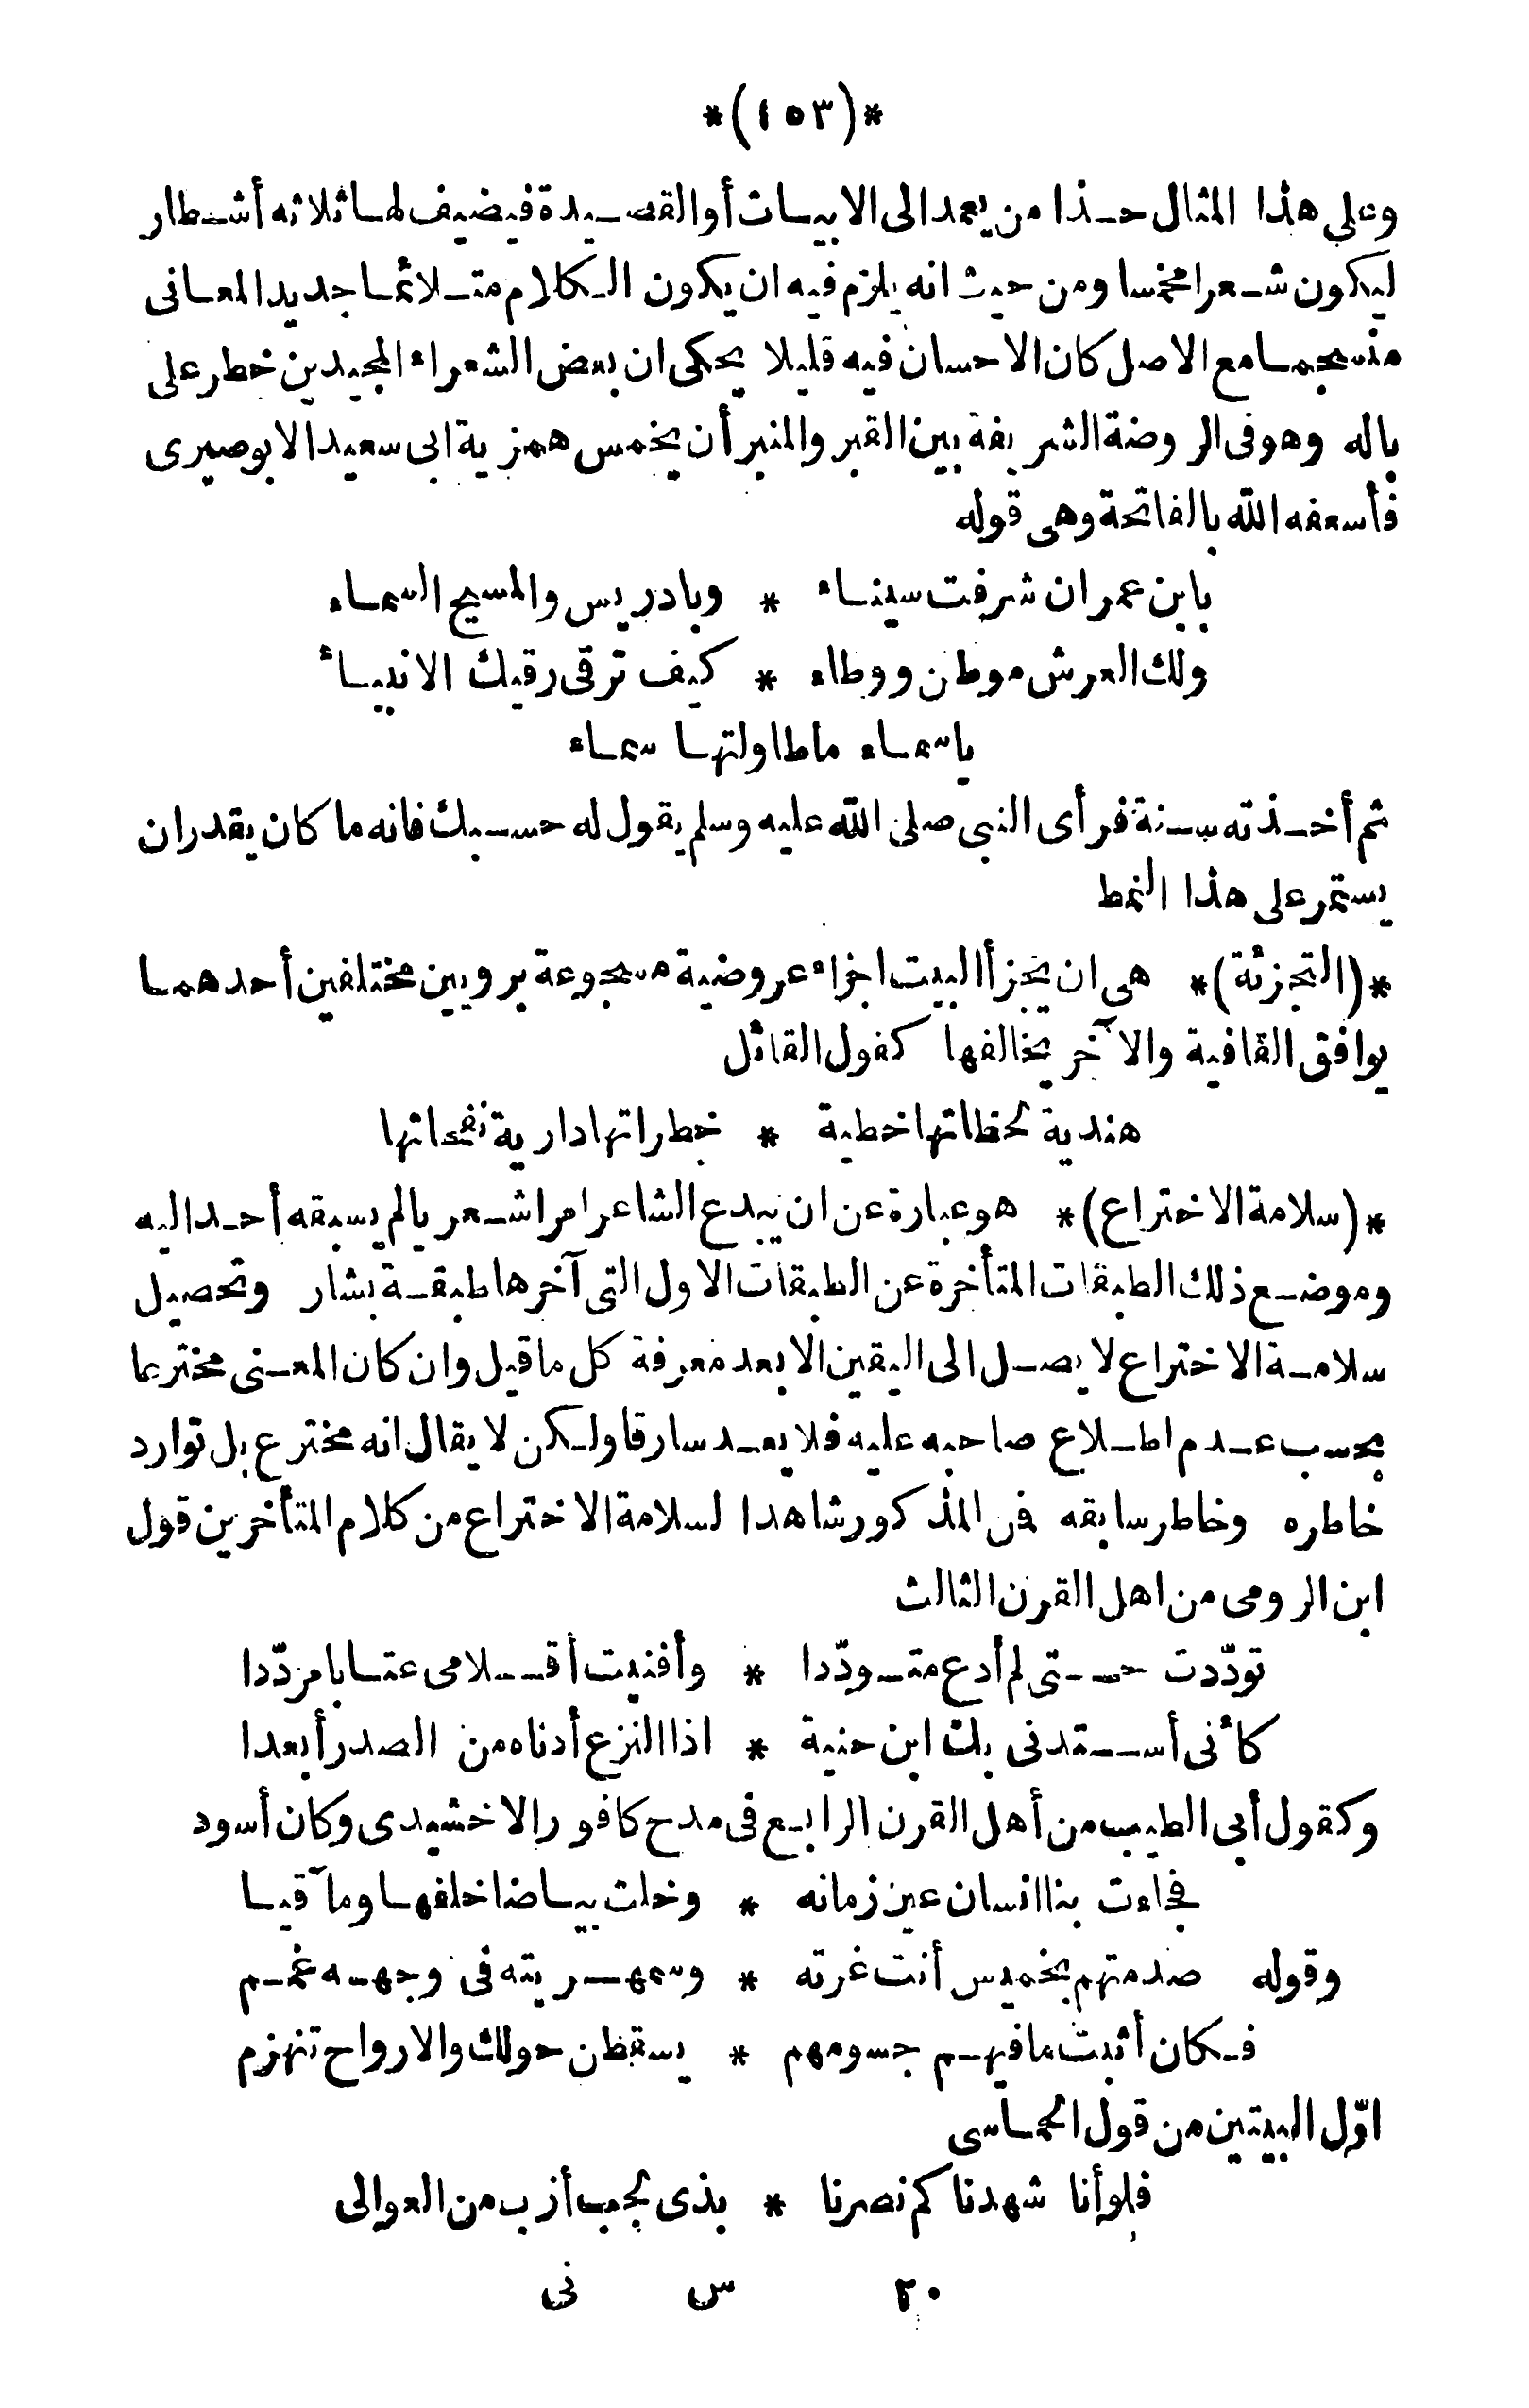 *(١٥٣)*
وعلى هذا المثال حذا من يعمد الى الابيات أو القصيدة فيضيف لها ثلاثه أشطار
ليكون شعرا مخمسا ومن حيث انه يلزم فيه ان يكون الكلام متلائما جديد المعانى
منسجما مع الاصل كان الاحسان فيه قليلا يحكى ان بعض الشعراء المجيدين خطر على
باله وهو فى الروضة الشريفة بين القبر والمنبر أن يخمس همزية ابى سعيد الابوصيرى
فأسعفه الله بالفاتحة وهى قوله
بابن عمران شرفت سيناء * وبادريس والمسيح السماء
ولك العرش موطن ووطاء * كيف ترقى رقيك الانبياء
ياسماء ماطاولتها سماء
ثم أخذته سنة فرأى النبى صلى الله عليه وسلم يقول له حسبك فانه ما كان يقدر ان
يستمر على هذا النمط
*(التجزئة)* هى ان يجزأ البيت اجزاء عروضية مسجوعة برويين مختلفين أحدهما
يوافق القافية والآخر يخالفها كقول القائل
هندية لحظاتها خطية * خطراتها دارية نفحاتها
*(سلامة الاختراع)* هو عبارة عن ان يبدع الشاعر امرا شعريا لم يسبقه أحد اليه
وموضع ذلك الطبقات المتأخرة عن الطبقات الاول التى آخرها طبقة بشار وتحصيل
سلامة الاختراع لا يصل الى اليقين الا بعد معرفة كل ما قيل وان كان المعنى مخترعا
بحسب عدم اطلاع صاحبه عليه فلا يعد سارقا ولكن لا يقال انه مخترع بل توارد
خاطره وخاطر سابقه فمن المذكور شاهدا لسلامة الاختراع من كلام المتأخرين قول
ابن الرومى من اهل القرن الثالث
تودّدت حتى لم أدع متودّدا * وأفنيت أقلامى عتابا مردّدا
كأنى أستدنى بك ابن حنية * اذا النزع أدناه من الصدر أبعدا
وكقول أبى الطيب من أهل القرن الرابع فى مدح كافور الاخشيدى وكان أسود
فجاءت بنا انسان عين زمانه * وخلت بياضا خلفها ومآقيا
وقوله صدمتهم بخميس أنت غرته * وسمهريته فى وجهه غمم
فكان أثبت ما فيهم جسومهم * يسقطن حولك والارواح تنهزم
اوّل البيتين من قول الحماسى
فلوأنا شهدنا كم نصرنا * بذى لجب أزب من العوالى
٢٠ س نى